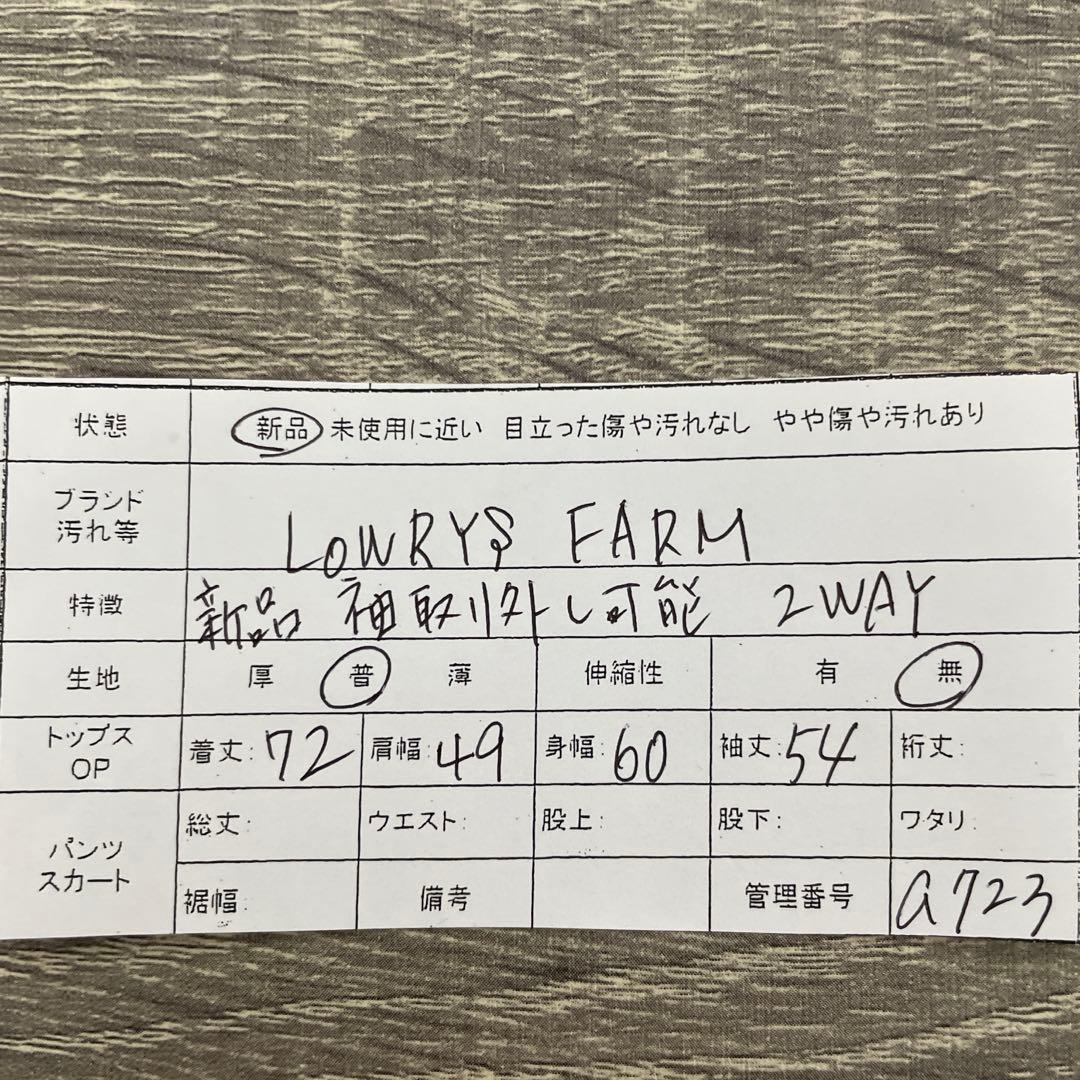 状態 新品 未使用に近い 目立った傷や汚れなし やや傷や汚れあり
ブランド
汚れ等 LOWRYS FARM
特徴 新品 袖取り外し可能 2WAY
生地 厚 普 薄 伸縮性 有 無
トップス
OP 着丈:72 肩幅:49 身幅:60 袖丈:54 裄丈:
パンツ
スカート 総丈: ウエスト: 股上: 股下: ワタリ:
裾幅: 備考 管理番号 a723